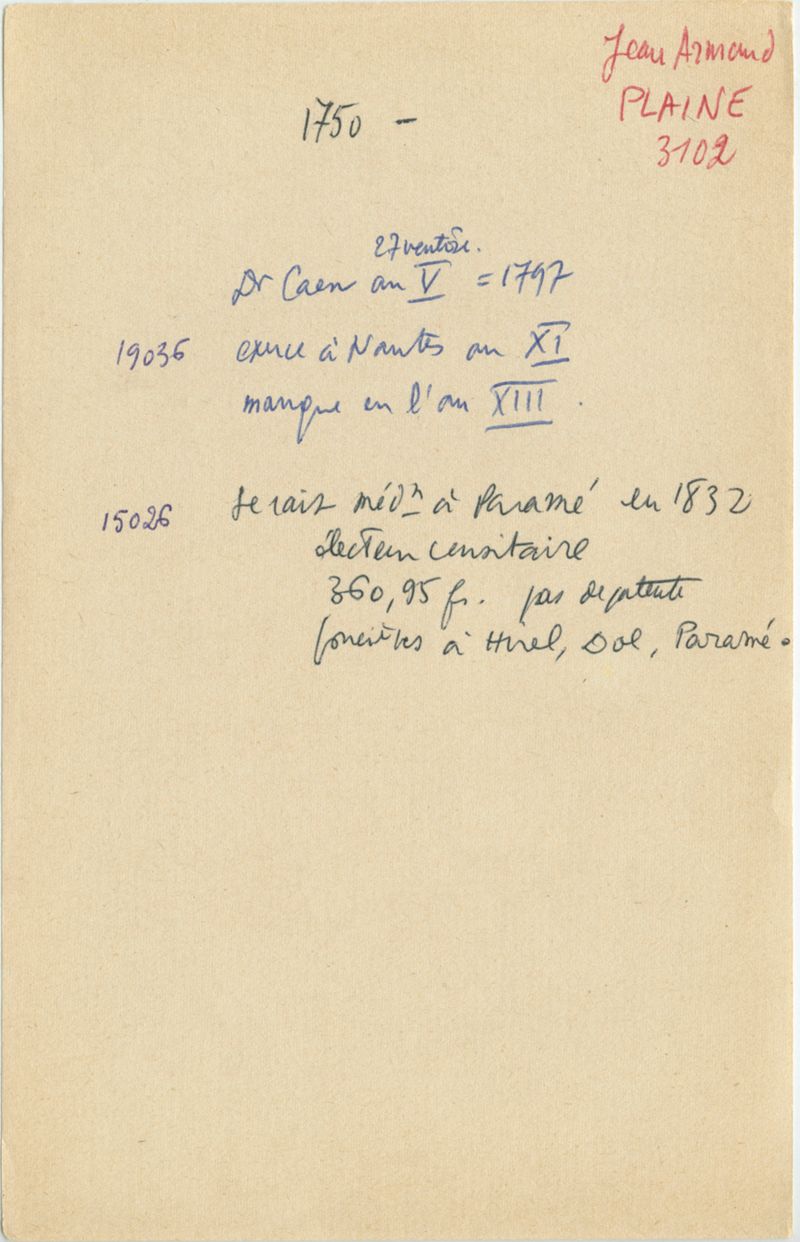 Jean Armand
PLAINE
3102
1750 -
27 ventôse.
Dr Caen an V = 1797
19036 exerce à Nantes an XI
manque en l'an XIII.
15026 serait médn à Paramé en 1832
électeur censitaire
360,95 fr. pas de patente
foncières à Hirel, Dol, Paramé.